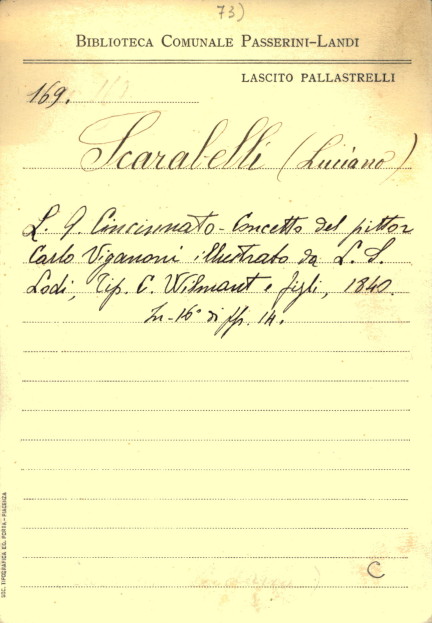 73)
BIBLIOTECA COMUNALE PASSERINI-LANDI
LASCITO PALLASTRELLI
169.
Scarabelli (Luciano)
L. Q. Cincinnato - Concetto del pittor
Carlo Viganoni illustrato da L. S.
Lodi, Tip. C. Wilmant e figli, 1840.
In-16° di pp. 14.
C
SOC. TIPOGRAFICA ED. PORTA - PIACENZA